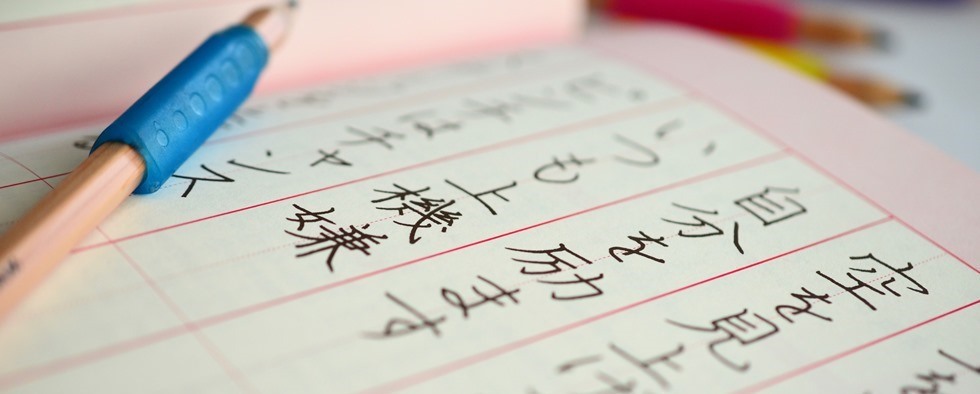 空を見上げ
自分を励ます
いつも上機嫌
ピンチはチャンス